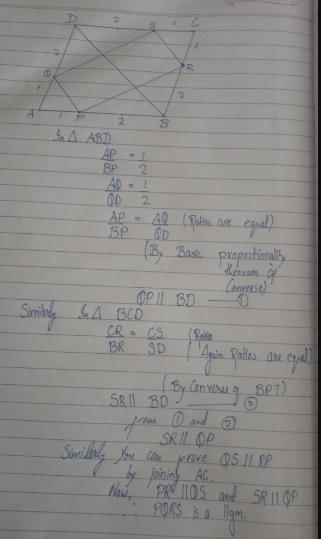 D 2 S 1 C
1
2
Q R
1 2
A 1 P 2 B
In Δ ABD
AP/BP = 1/2
AQ/QD = 1/2
AP/BP = AQ/QD (Ratios are equal)
(By Basic propotionality
theoram of
Converse)
QP || BD — ①
Similarly In Δ BCD
CR/BR = CS/SD (Again Ratios are equal)
(By Converse of BPT)
SR || BD — ②
from ① and ②
SR || QP
Similarly You can prove QS || RP
by joining AC.
Now, PR || QS and SR || QP
∴ PQRS is a ||gm.